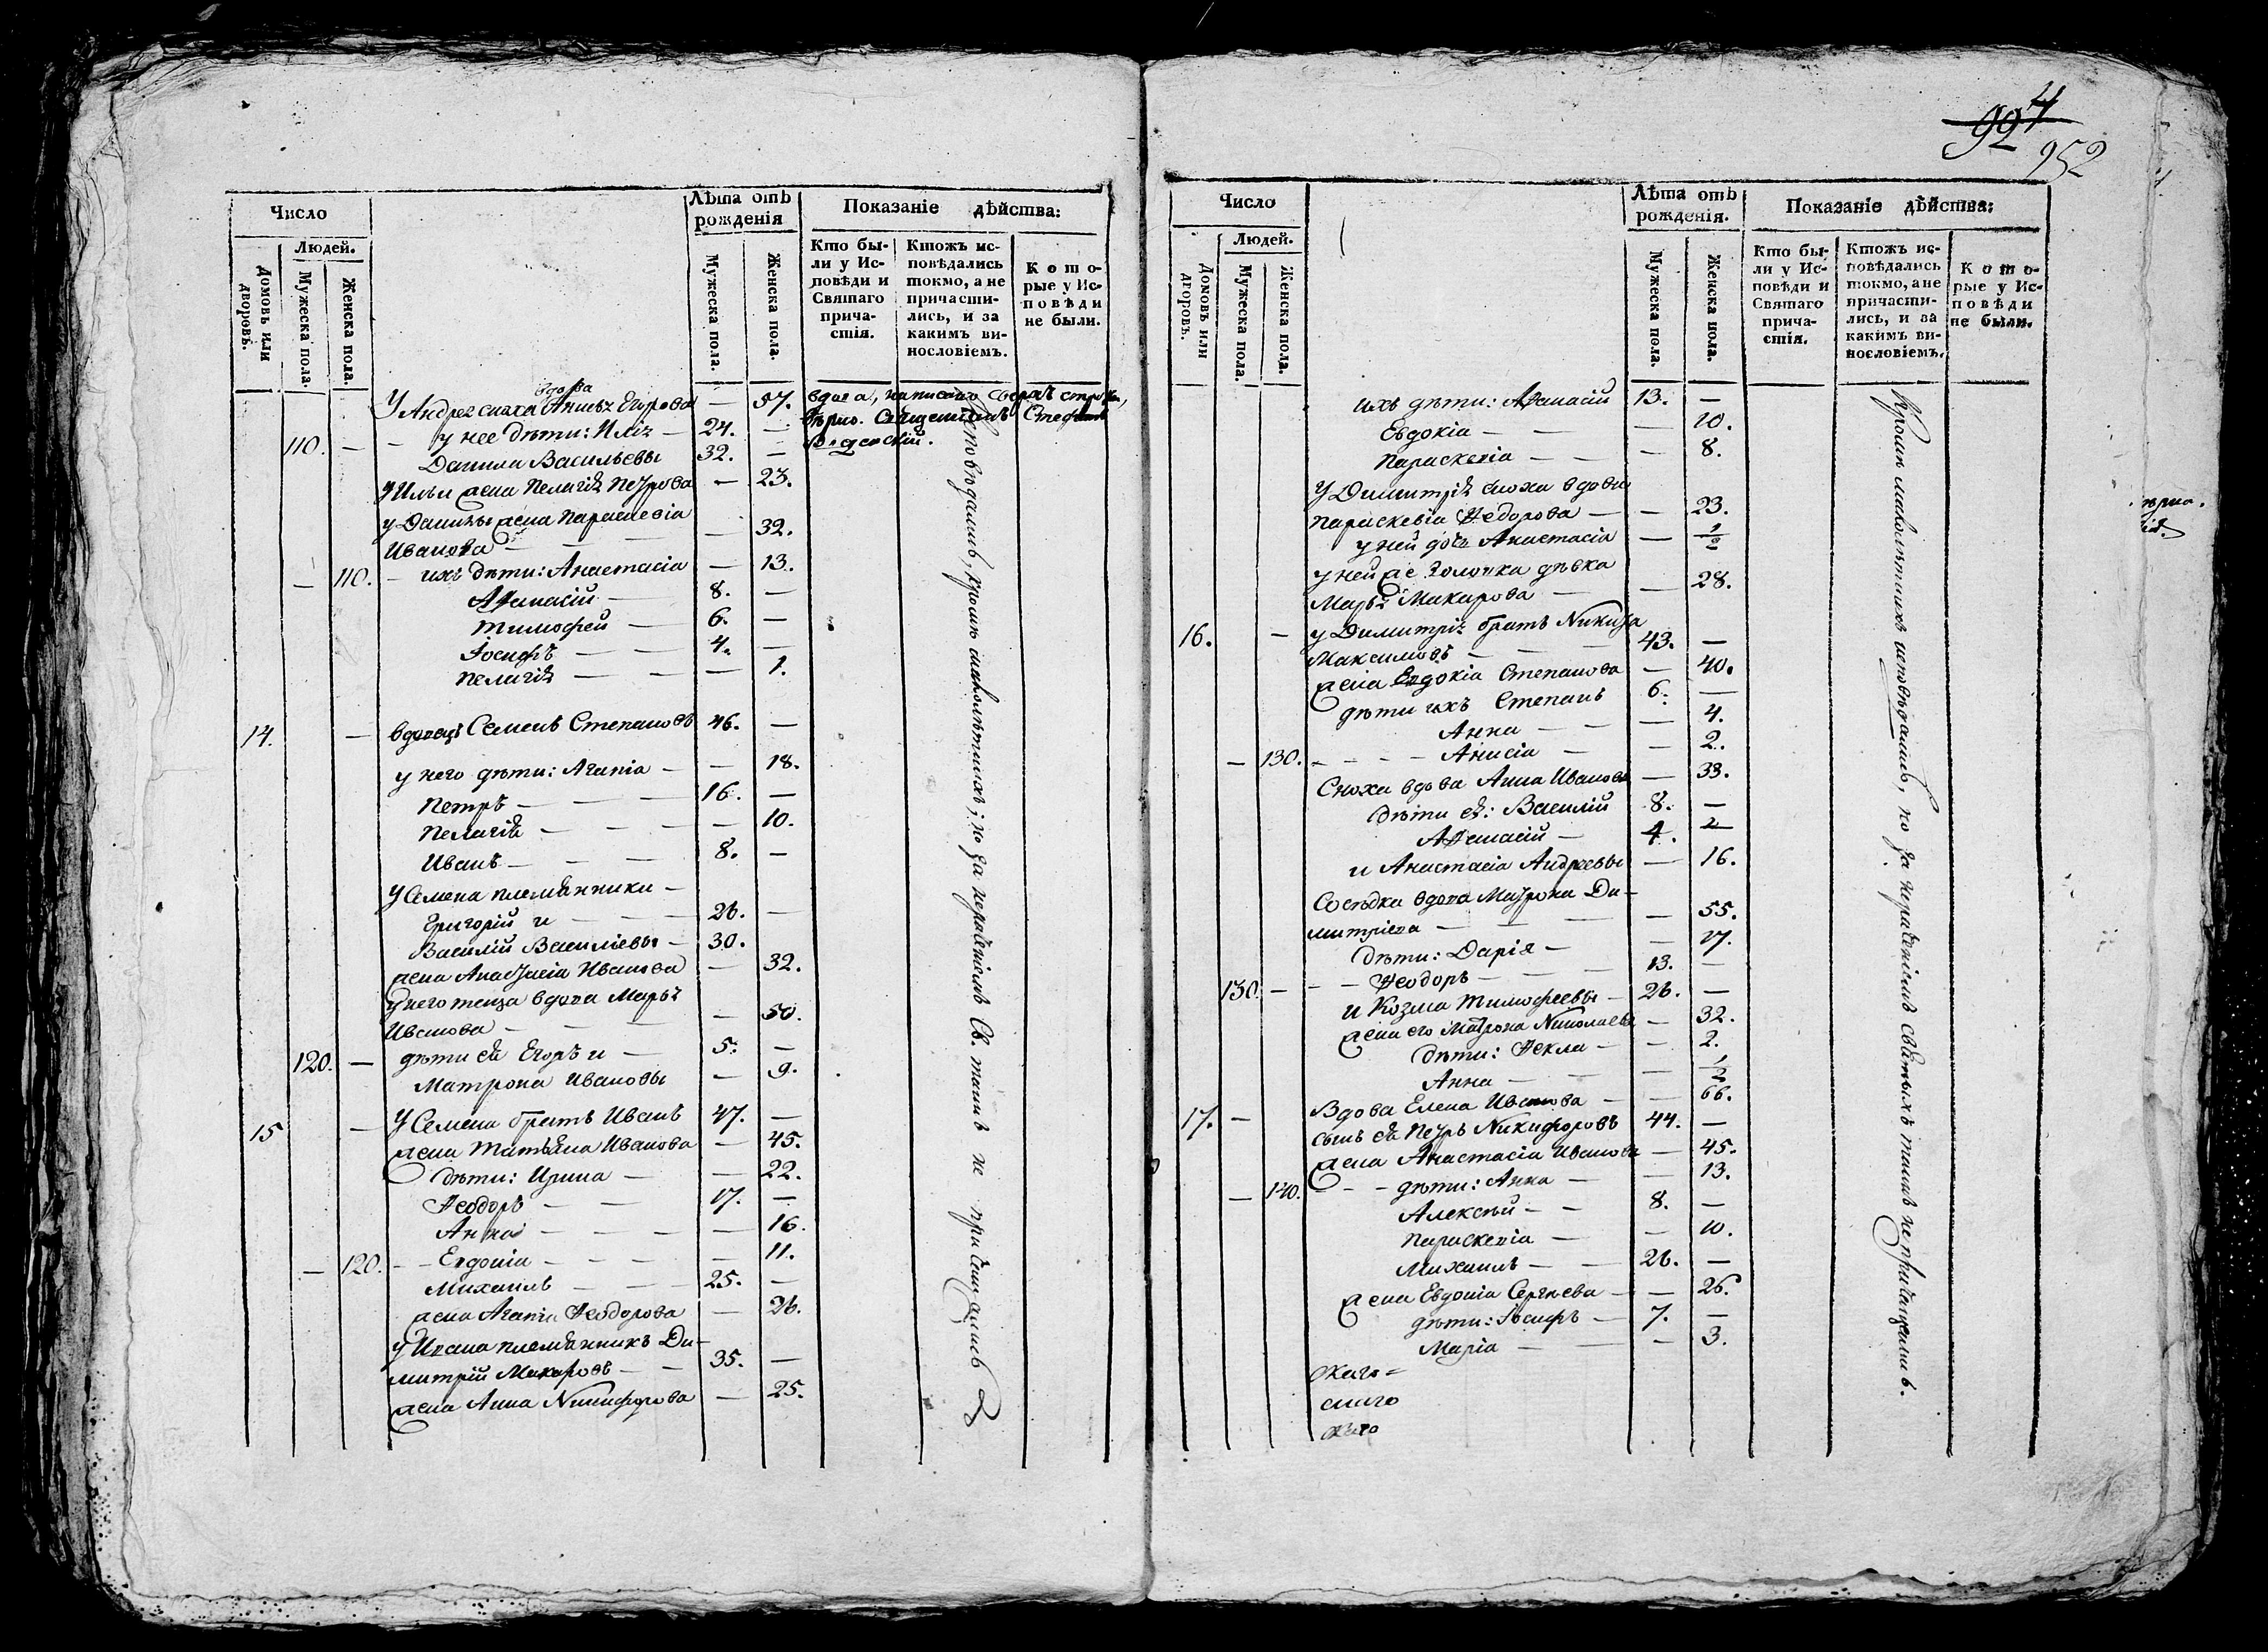 992 4
952
Число
Людей.
Домовъ или дворовъ.
Мужеска пола.
Женска пола.
Лѣта отъ рожденія
Мужеска пола.
Женска пола.
Показаніе дѣйства:
Кто были у Исповѣди и Святаго причастія.
Ктожъ исповѣдались токмо, а не причастились, и за какимъ винословіемъ.
Которые у Исповѣди не были.
вдова
У Андрея сноха Анисья Егорова — 57. вдова, написано сверхъ строки,
вѣрно. Священникъ Стефанъ
110. — у нее дѣти: Илія — 24. —
Данила Васильевы 32. —
У Ильи жена Пелагія Петрова — 23.
у Данилы жена Параскевія
Иванова — 32.
— 110. — ихъ дѣти: Анастасія — 13.
Аѳанасій — 8. —
Тимофей — 6. —
Іосифъ — — 4. —
Пелагія — — — 1.
14. — вдовецъ Семенъ Степановъ 46. —
у него дѣти: Агапія — — 18.
Петръ — — — 16. —
Пелагія — — — — 10.
Иванъ — — — 8. —
У Семена племянники —
Григорій и — — — 26. —
Василій Василіевы — 30.
жена Анастасія Иванова — 32.
у него теща вдова Марья
Иванова — — — — 50.
120. — дѣти ея Егоръ и — 5. —
Матрона Ивановы — 9.
15 — У Семена братъ Иванъ 47. —
жена Татьяна Иванова — 45.
дѣти: Ирина — — 22.
Ѳеодоръ — — 17. —
Анна — — — — 16.
— 120. — — Евдокія — — — — 11.
Михаилъ — — — 25. —
жена Агапія Ѳеодорова — 26.
у Ивана племянникъ Ди-
митрій Макаровъ — — 35. —
жена Анна Никифорова — 25.
Исповѣдались, кромѣ малолѣтнихъ; но за нераченіемъ Св. таинъ не причащались
Число
Людей.
Домовъ или дворовъ.
Мужеска пола.
Женска пола.
Лѣта отъ рожденія.
Мужеска пола.
Женска пола.
Показаніе дѣйства:
Кто были у Исповѣди и Святаго причастія.
Ктожъ исповѣдались токмо, а не причастились, и за какимъ винословіемъ.
Которые у Исповѣди не были.
ихъ дѣти: Аѳанасій 13. —
Евдокія — — — 10.
Параскевія — — — 8.
У Димитрія сноха вдова
Параскевія Ѳедорова — — 23.
у ней дочь Анастасія — 1/2
у ней же золовка дѣвка
Марья Макарова — — 28.
16. — у Димитрія братъ Никита
Максимовъ — — — 43. —
жена Евдокія Степанова — 40.
дѣти ихъ Степанъ 6. —
Анна — — — 4.
— 130. — — — Анисія — — 2.
Сноха вдова Анна Иванова — 33.
дѣти ея: Василій 8. —
Аѳанасій — 4. —
и Анастасія Андреевы — 16.
Сосѣдка вдова Матрона Ди-
митріева — — — — 55.
дѣти: Дарія — — 17.
130. — — — Ѳеодоръ — — — 13. —
и Козма Тимофеевы — 26. —
жена его Матрона Николаева — 32.
дѣти: Ѳекла — — 2.
Анна — — — 1/2
17. — Вдова Елена Иванова — — 66.
сынъ ея Петръ Никифоровъ 44. —
жена Анастасія Иванова — 45.
— 140. — — — дѣти: Анна — — 13.
Алексѣй — — 8. —
Параскевія — — 10.
Михаилъ — — 26. —
жена Евдокія Сергѣева — — 26.
дѣти: Іосифъ — 7. —
Марія — — — 3.
Кромѣ малолѣтнихъ исповѣдались, но за нераченіемъ святыхъ таинъ не причащались.